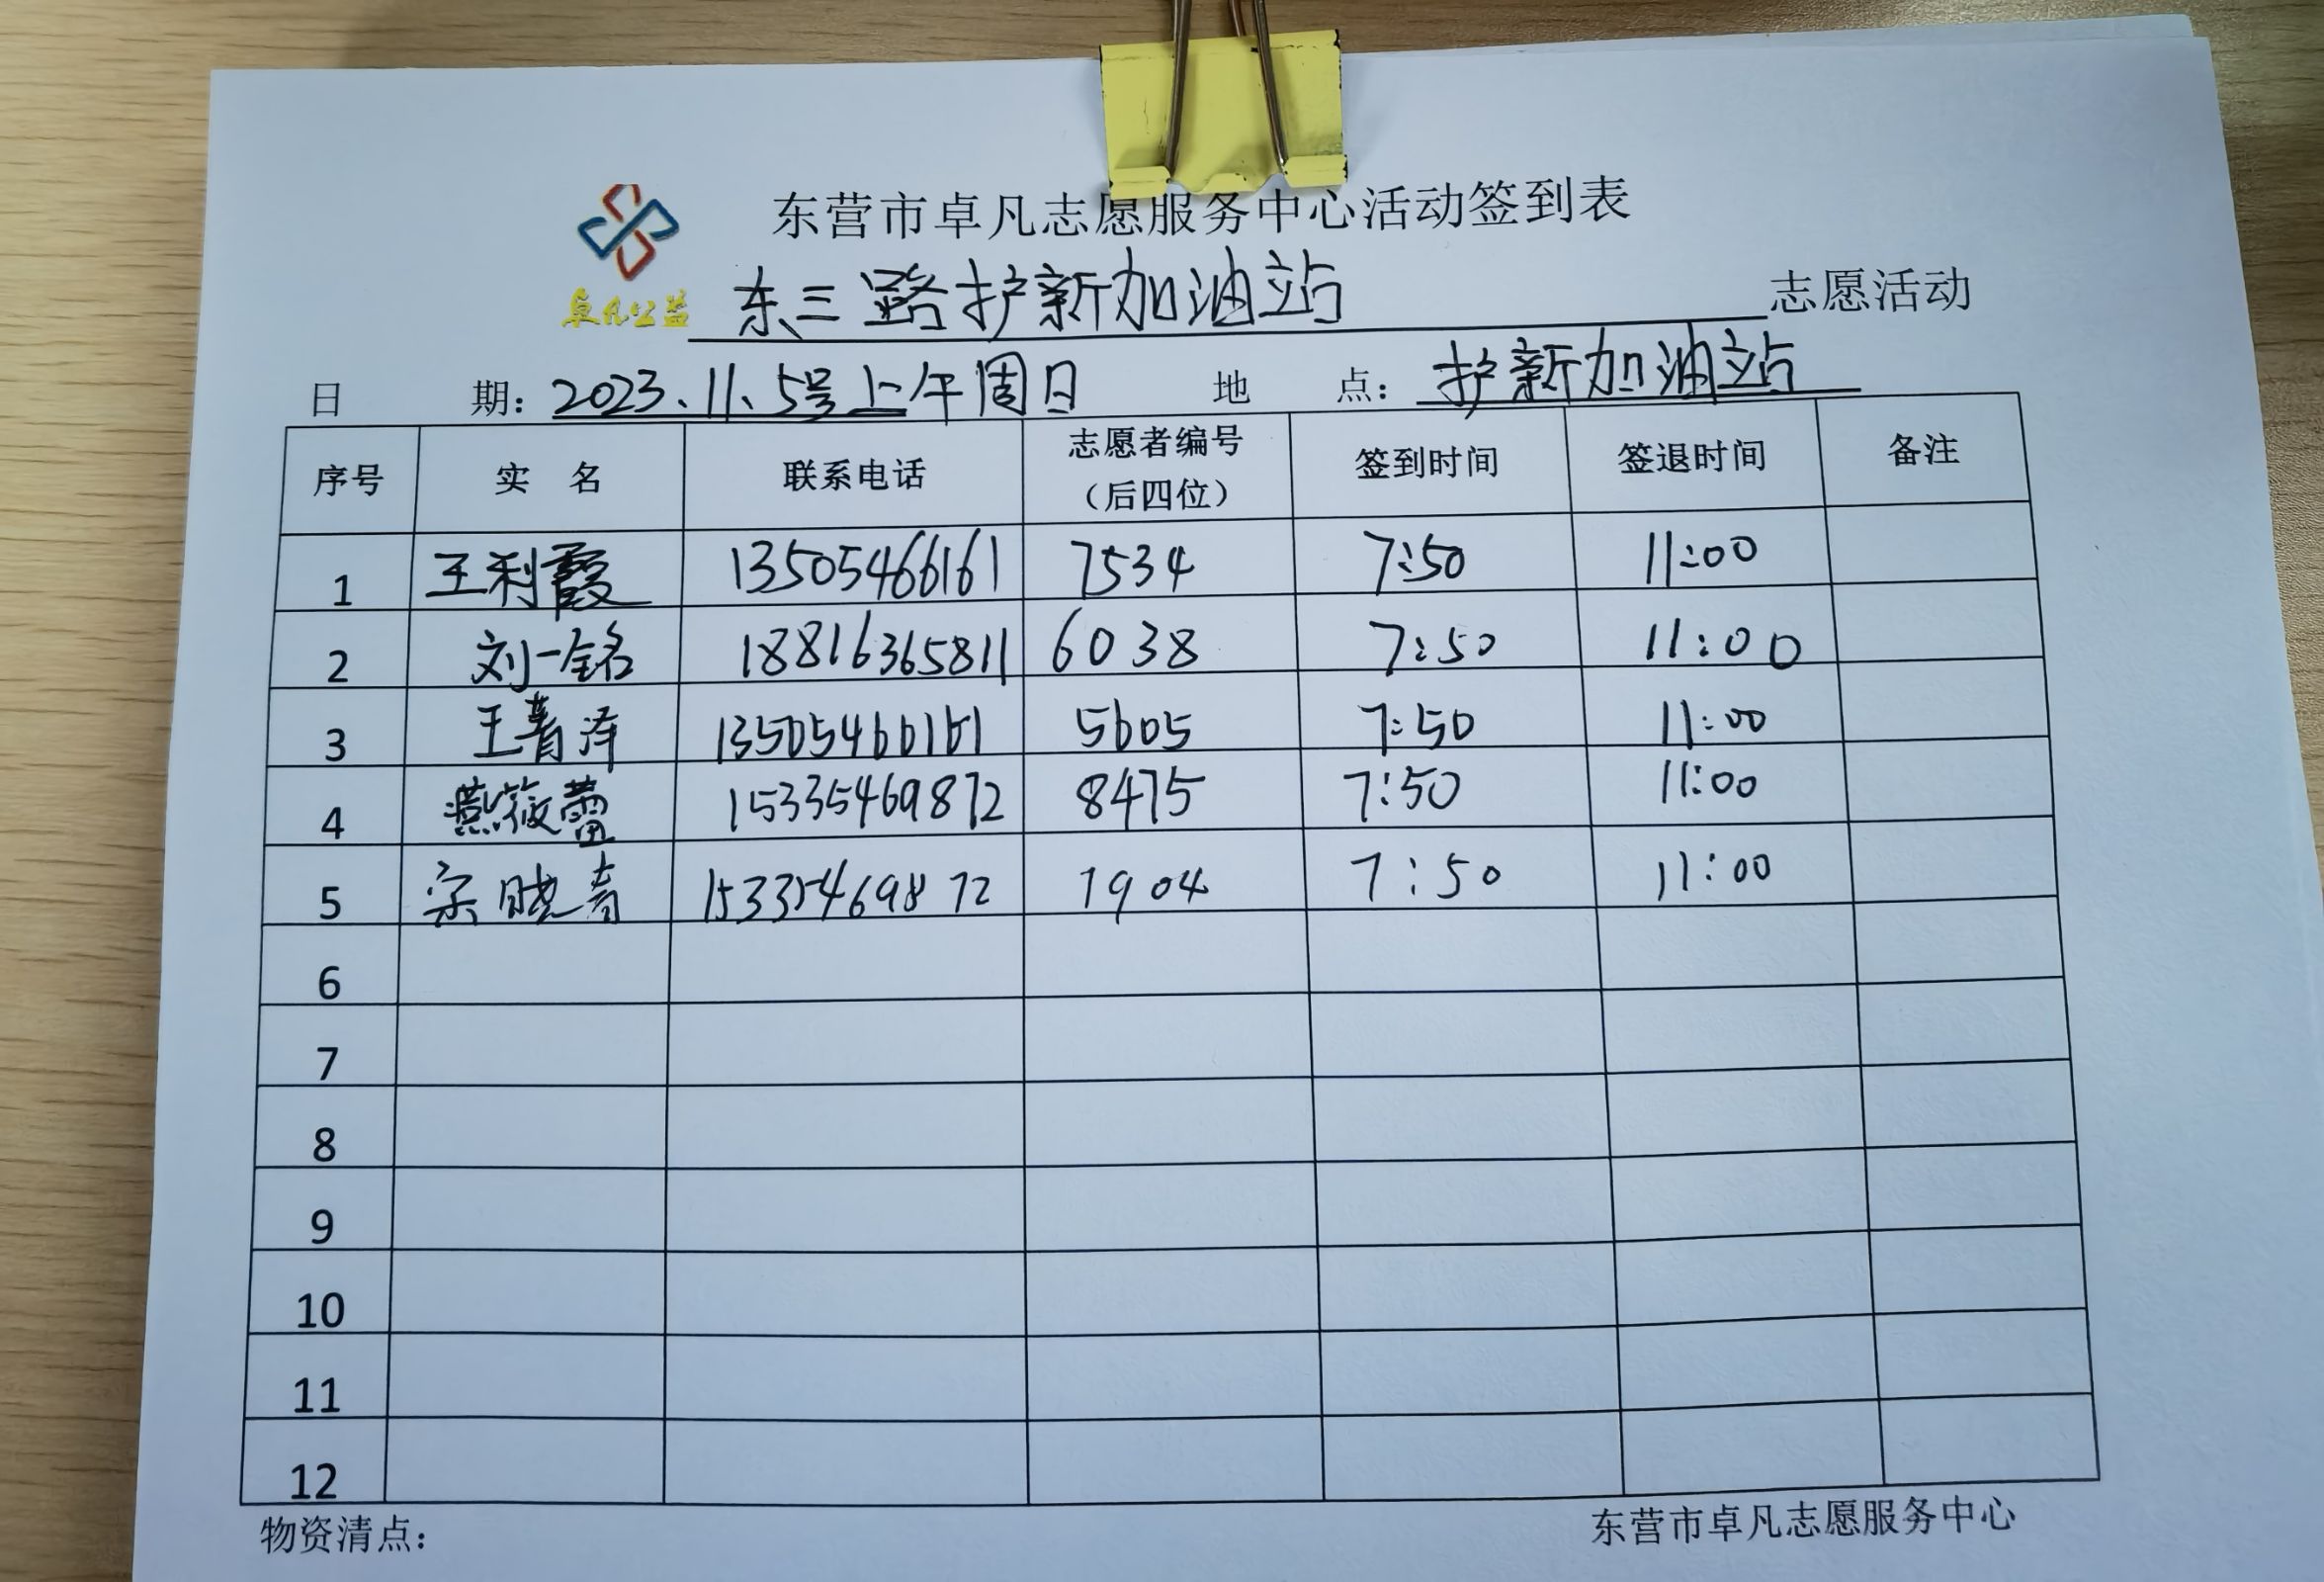 东营市卓凡志愿服务中心活动签到表
卓凡公益 东三路护新加油站 志愿活动
日 期：2023.11、5号上午周日 地 点：护新加油站
序号 实 名 联系电话 志愿者编号（后四位） 签到时间 签退时间 备注
1 王利霞 13505466161 7534 7:50 11:00
2 刘一铭 18816365811 6038 7:50 11:00
3 王菁泽 13505466161 5605 7:50 11:00
4 燕筱蕾 15335469872 8475 7:50 11:00
5 宗晓青 15335469872 1904 7:50 11:00
6
7
8
9
10
11
12
物资清点： 东营市卓凡志愿服务中心